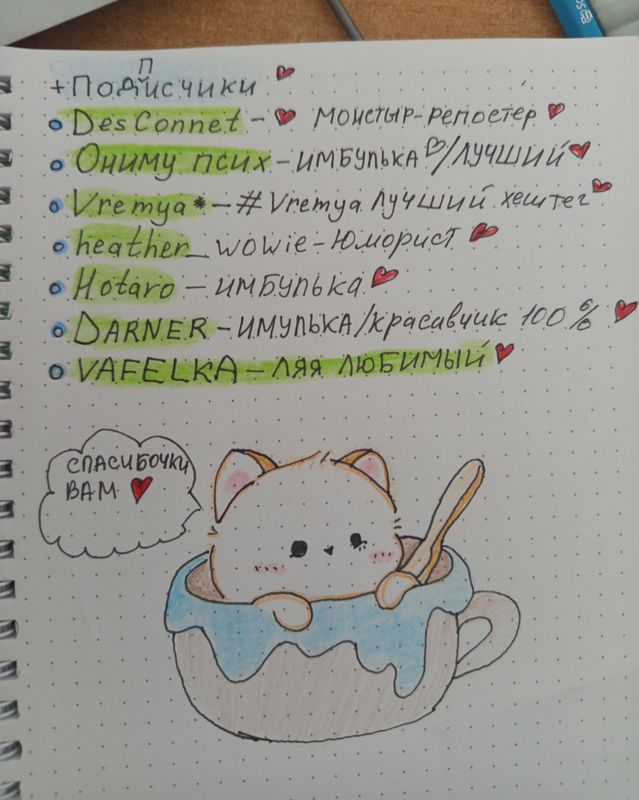 +Подписчики ❤
DesConnet - ❤ монстыр-репостер ❤
Ониму псих - имбулька♡/лучший❤
Vremya* - #Vremya лучший хештег❤
heather_wowie - Юморист ❤
Hotaro - имбулька❤
DARNER - имулька/красавчик 100% ❤
VAFELKA - ляя любимый❤
спасибочки
вам ❤